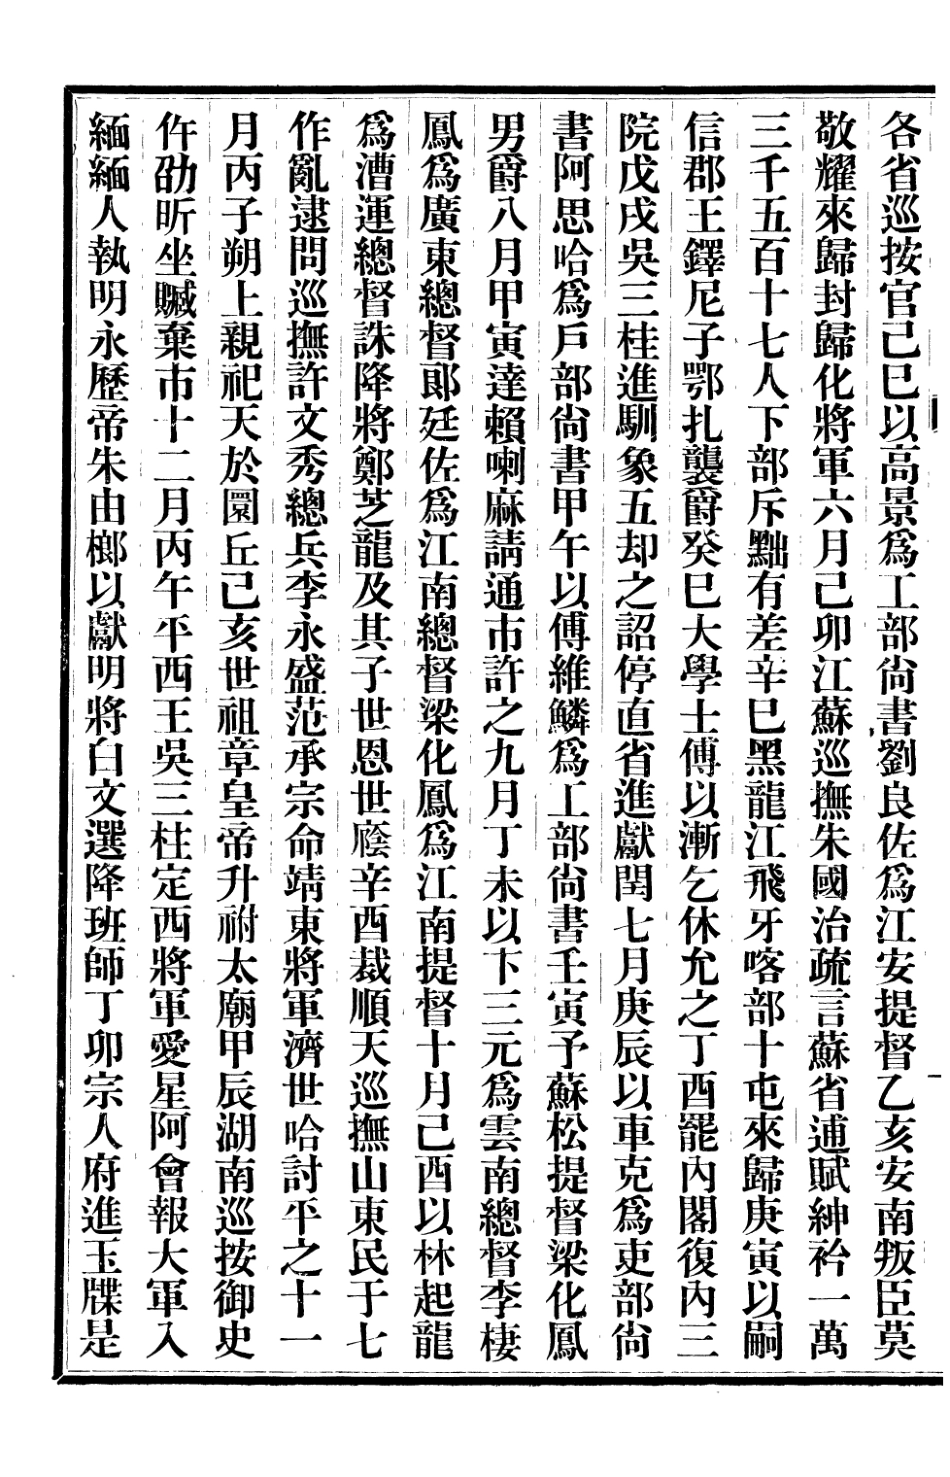 各省巡按官己巳以高景爲工部尙書劉良佐爲江安提督乙亥安南叛臣莫
敬耀來歸封歸化將軍六月己卯江蘇巡撫朱國治疏言蘇省逋賦紳衿一萬
三千五百十七人下部斥黜有差辛巳黑龍江飛牙喀部十屯來歸庚寅以嗣
信郡王鐸尼子鄂扎襲爵癸巳大學士傅以漸乞休允之丁酉罷內閣復內三
院戊戌吳三桂進馴象五却之詔停直省進獻閏七月庚辰以車克爲吏部尙
書阿思哈爲戶部尙書甲午以傅維鱗爲工部尙書壬寅予蘇松提督梁化鳳
男爵八月甲寅達賴喇麻請通市許之九月丁未以卞三元爲雲南總督李棲
鳳爲廣東總督郞廷佐爲江南總督梁化鳳爲江南提督十月己酉以林起龍
爲漕運總督誅降將鄭芝龍及其子世恩世廕辛酉裁順天巡撫山東民于七
作亂逮問巡撫許文秀總兵李永盛范承宗命靖東將軍濟世哈討平之十一
月丙子朔上親祀天於圜丘己亥世祖章皇帝升祔太廟甲辰湖南巡按御史
仵劭昕坐贓棄市十二月丙午平西王吳三桂定西將軍愛星阿會報大軍入
緬緬人執明永歷帝朱由榔以獻明將白文選降班師丁卯宗人府進玉牒是